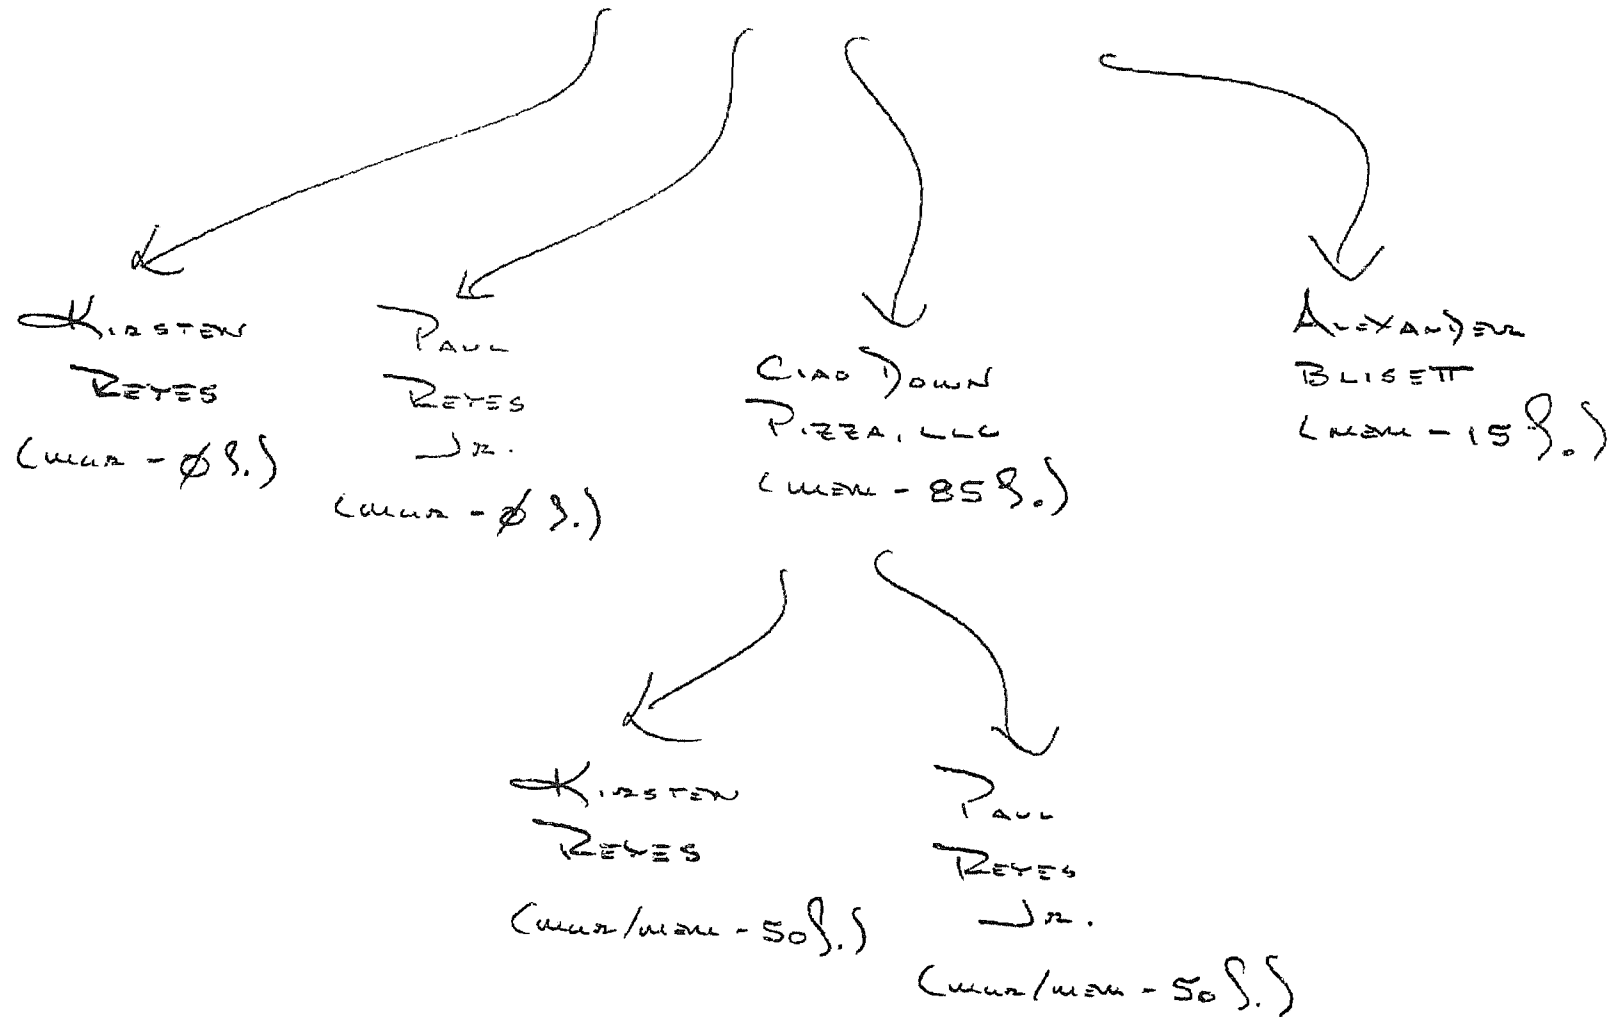 Kirsten
Reyes
(mgr - ø%)
Paul
Reyes
Jr.
(mgr - ø%)
Ciao Down
Pizza, LLC
(mem - 85%)
Alexander
Blisett
(mem - 15%)
Kirsten
Reyes
(mgr/mem - 50%)
Paul
Reyes
Jr.
(mgr/mem - 50%)